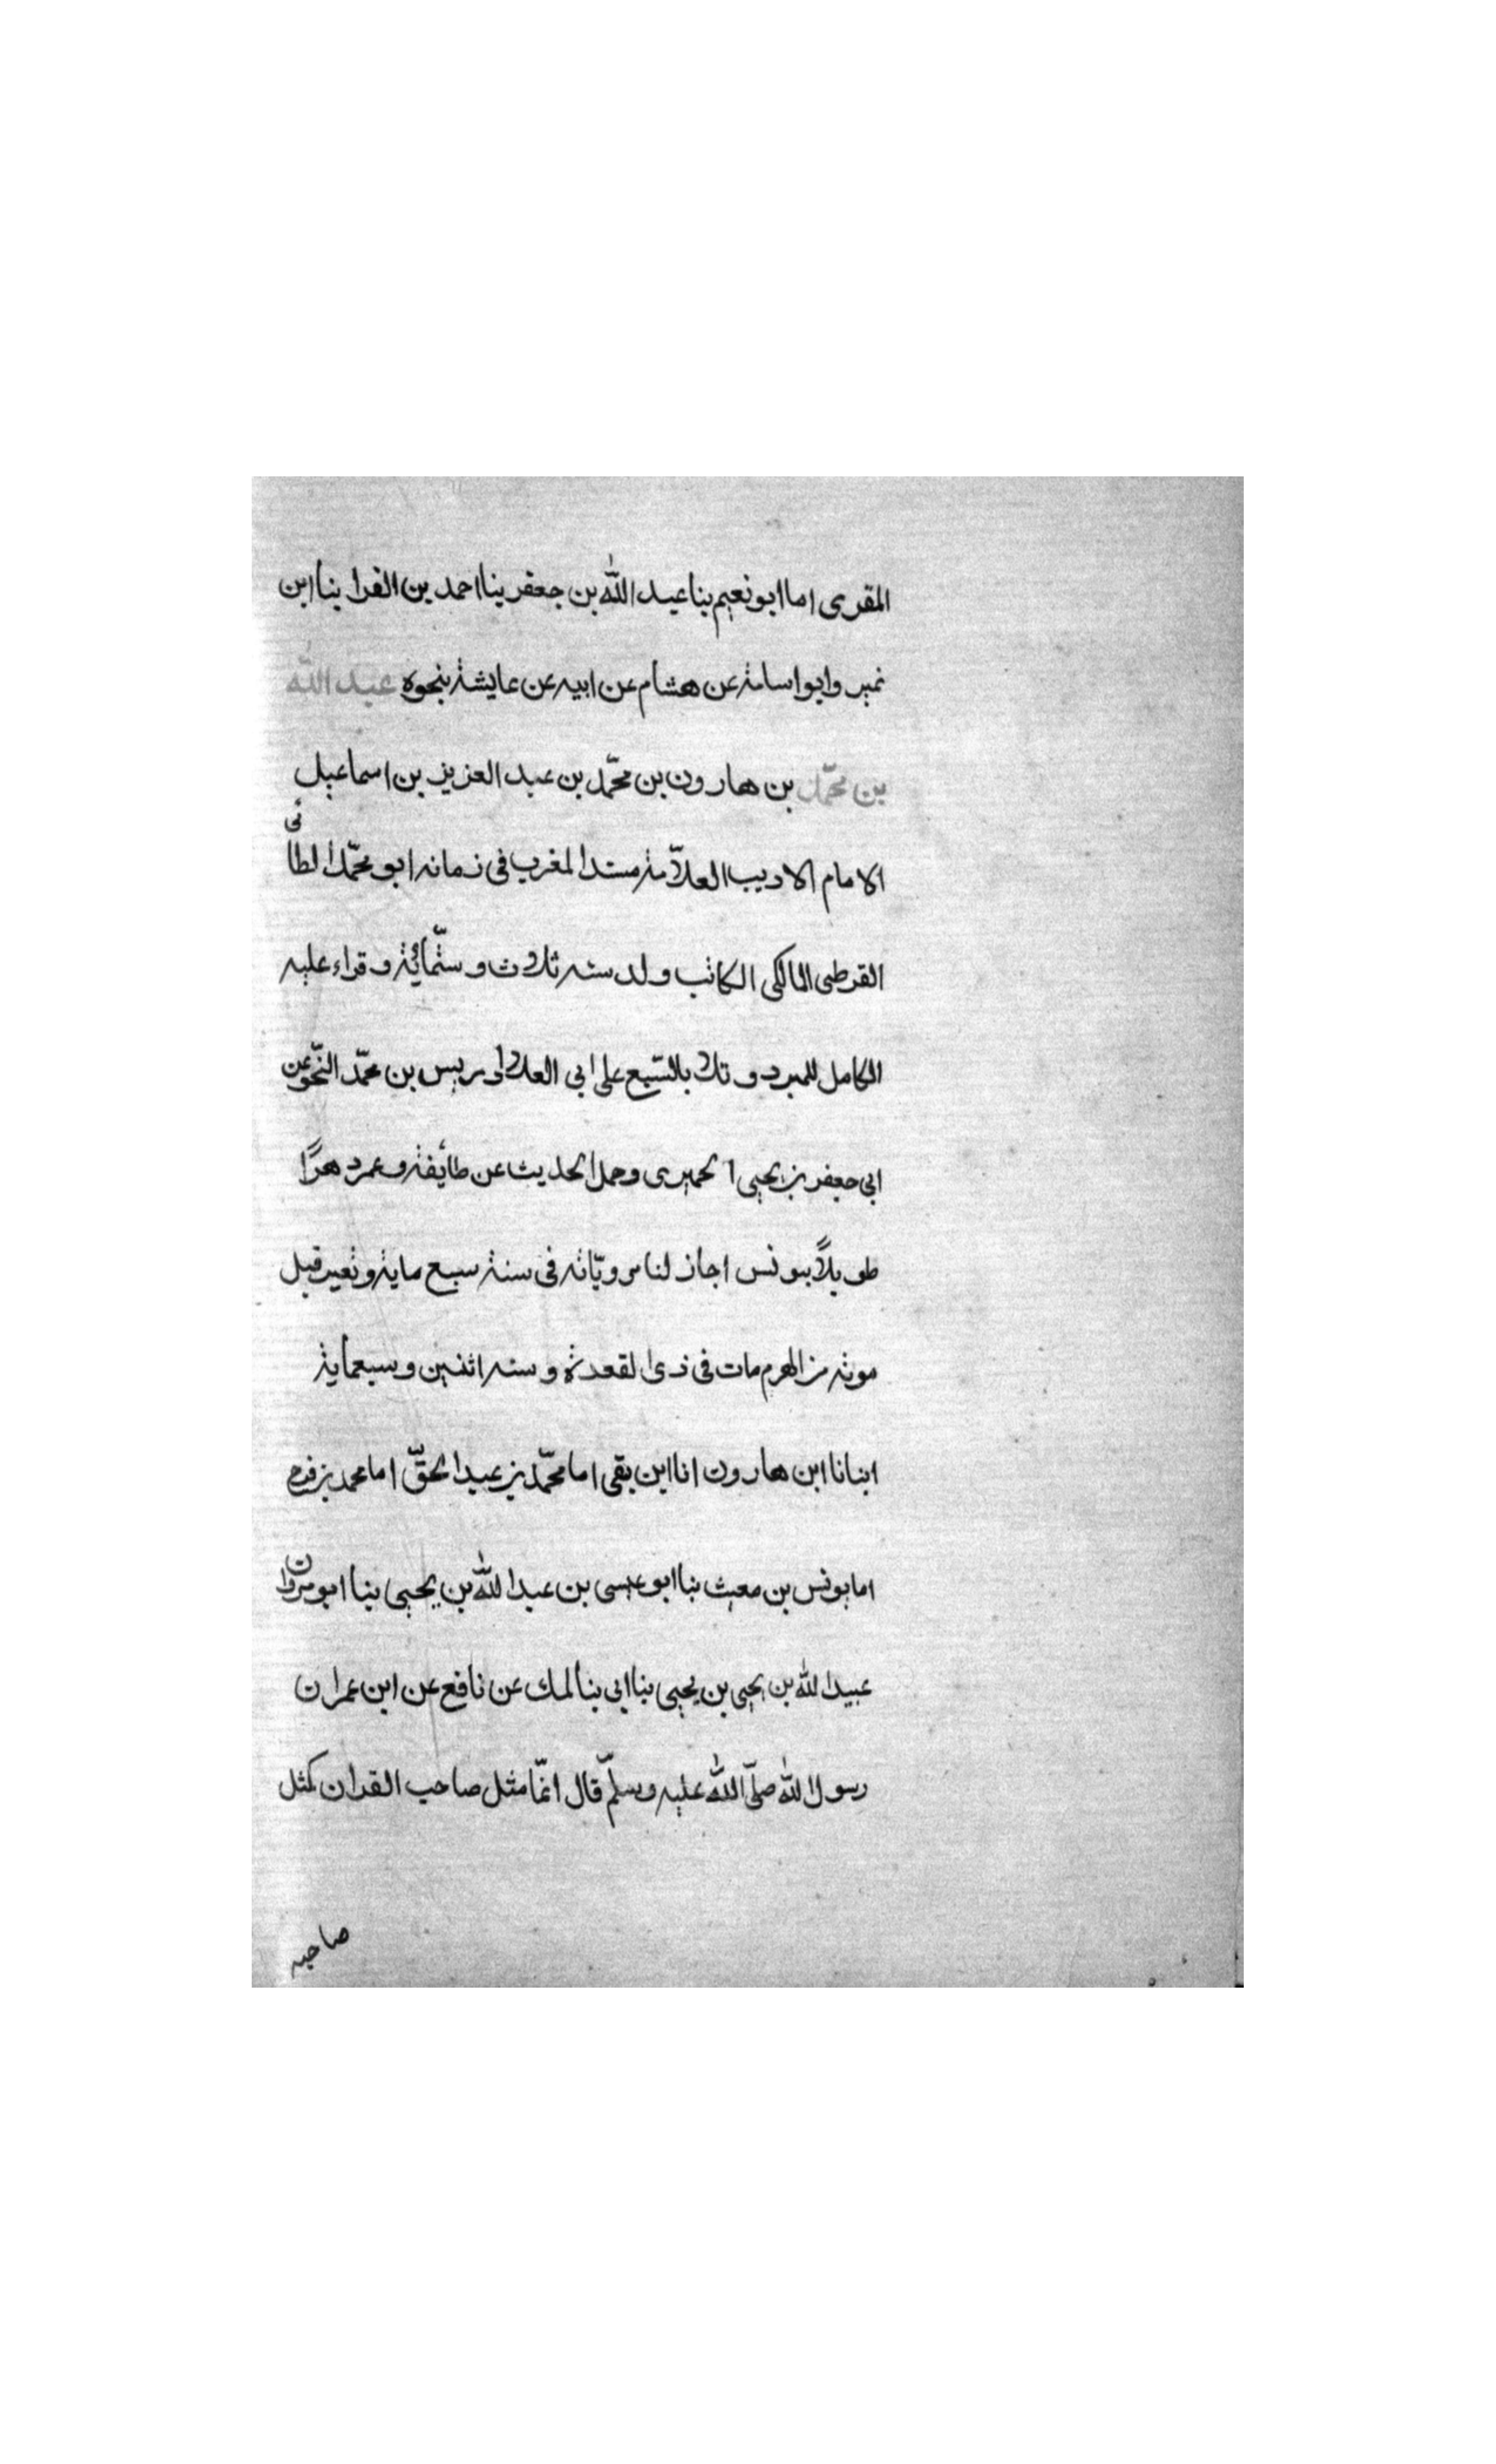 المقرى اما ابو نعيم بنا عبد الله بن جعفر بنا احمد بن الفرا بنا ابن
نمير وابو اسامة عن هشام عن ابيه عن عايشة بنحوه عبد الله
بن محمّد بن هارون بن محمّد بن عبد العزيز بن اسماعيل
الامام الاديب العلاّمة مسند المغرب فى زمانه ابو محمّد الطائى
القرطبى المالكى الكاتب ولد سنه ثلاث وستّمائة وقراء عليه
الكامل للمبرد وتلا بالسّبع على ابى العلا ادريس بن محمّد النّحو عن
ابى جعفر بن يحيى الحميرى وحمل الحديث عن طائفة وعمر دهرًا
طويلاً بتونس اجاز لنا مرويّاته فى سنة سبع ماية وتغير قبل
موته من الهرم مات فى ذى القعدة و سنه اثنين وسبعماية
انبانا ابن هارون انا ابن بقى اما محمّد بن عبد الحقّ اما محمد بن فرح
اما يونس بن مغيث بنا ابو عيسى بن عبد الله بن يحيى بنا ابو مروان
عبيد الله بن يحيى بن يحيى بنا ابى بنا لمك عن نافع عن ابن عمر ان
رسول الله صلّى الله عليه وسلّم قال انّما مثل صاحب القران كمثل
صاحب